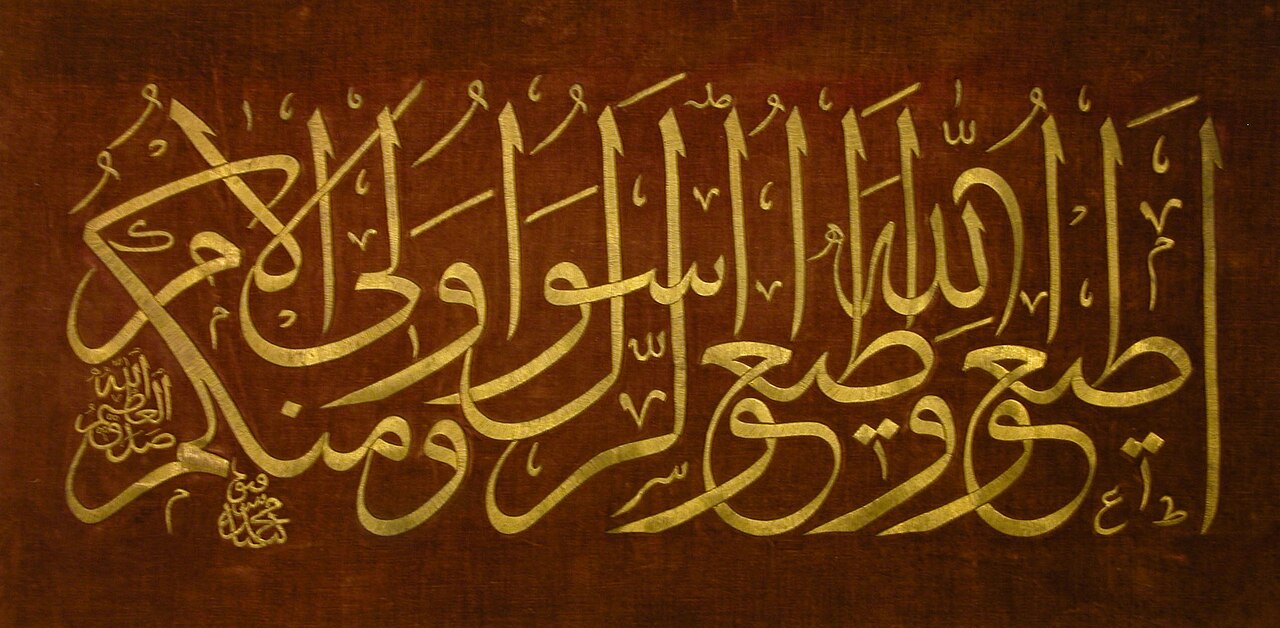 اطيعوا الله واطيعوا الرسول واولى الامر منكم
صدق الله العظيم
كتبه محمد